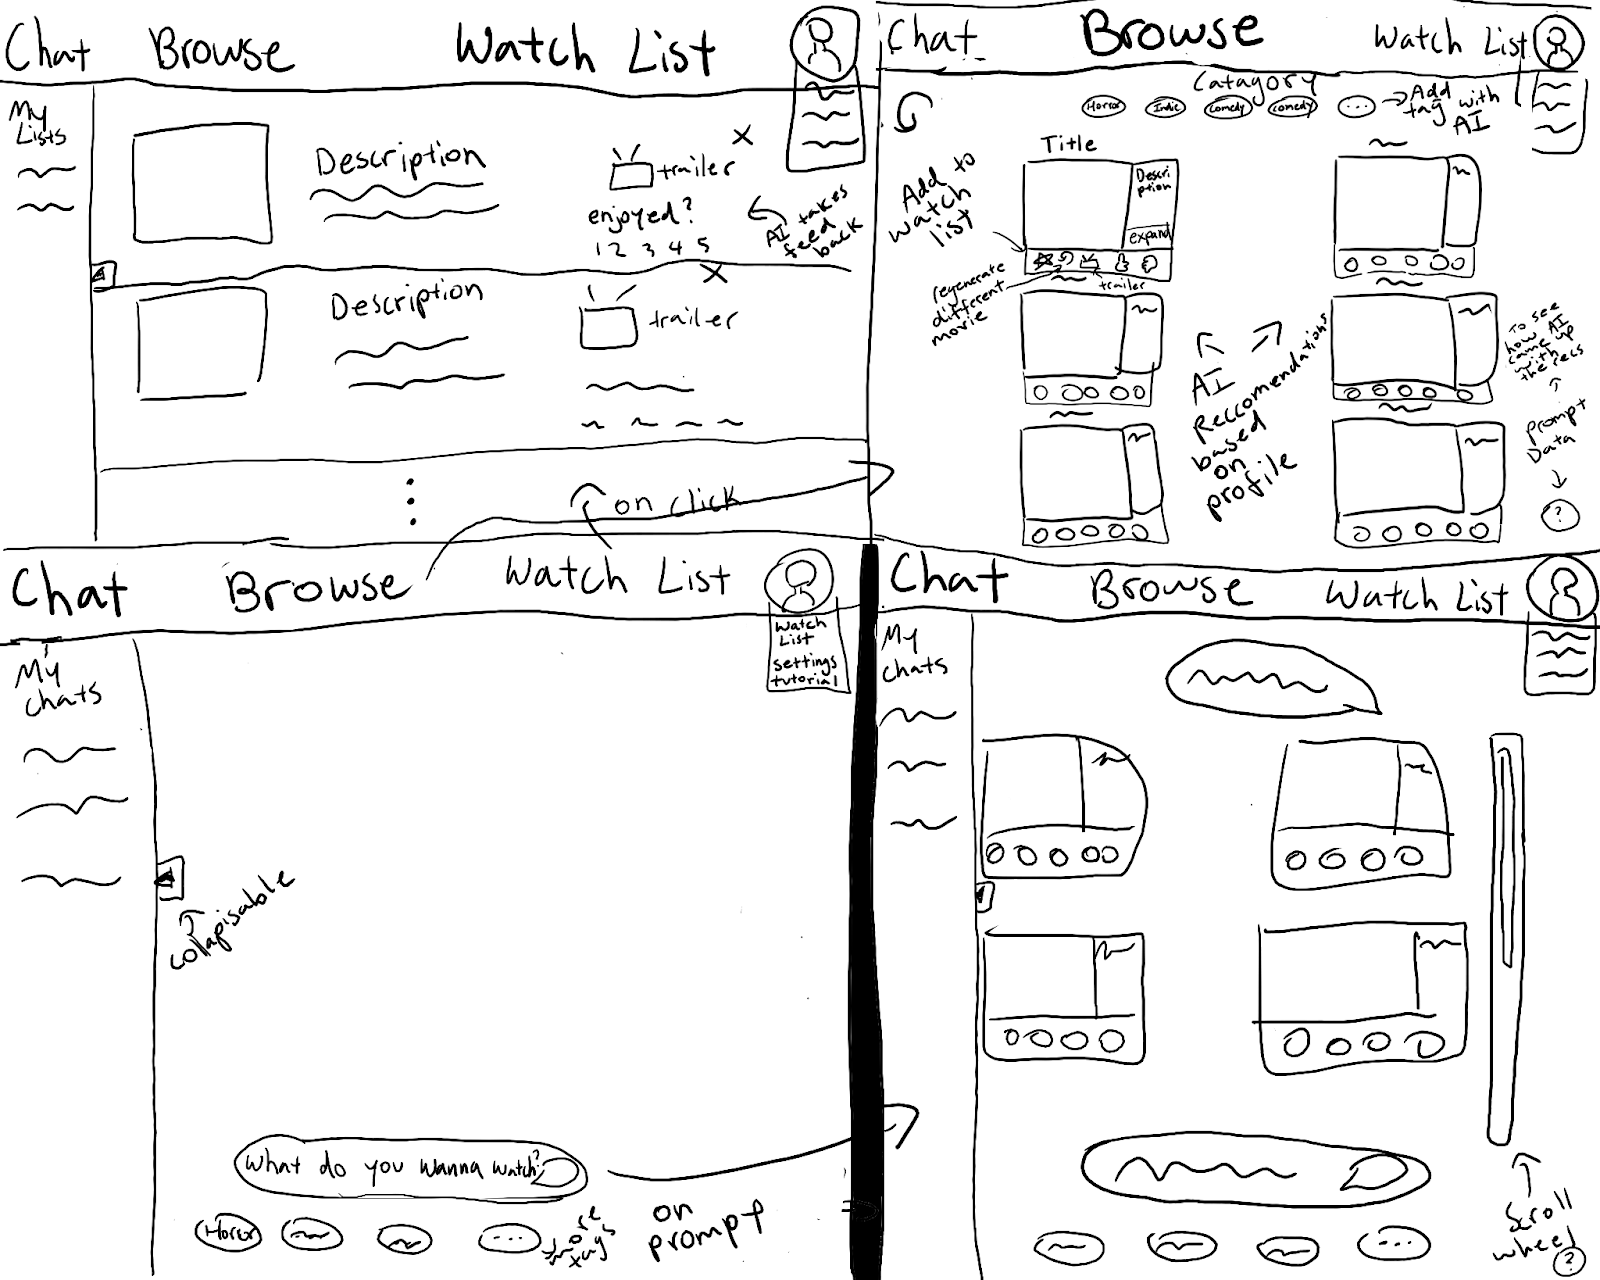 Chat Browse Watch List
My
Lists
Description
trailer
X
enjoyed?
1 2 3 4 5
AI takes
feed
back
Description
trailer
X
on click
Chat Browse Watch List
Catagory
Horror Indie comedy comedy ...
Add
tag with
AI
Title
Descri
ption
expand
Add to
watch
list
regenerate
different
movie
trailer
AI
Reccomendations
based
on
profile
To see
how AI
came up
with
the recs
prompt
Data
?
Chat Browse Watch List
Watch
List
settings
tutorial
My
chats
collapisable
What do you wanna watch?
Horor ...
more
tags
on
prompt
Chat Browse Watch List
My
chats
...
Scroll
wheel
?